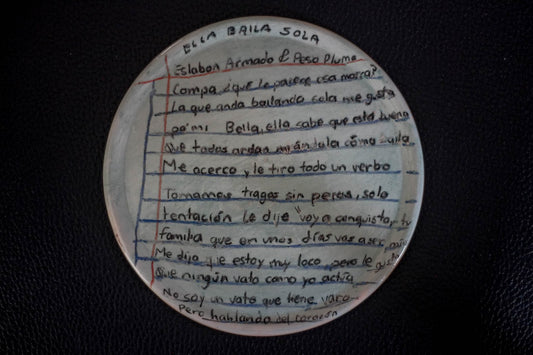 ELLA BAILA SOLA
Eslabon Armado & Peso Pluma
Compa ¿que le parece esa morra?
La que anda bailando sola me gusta
pa' mi Bella, ella sabe que está buena
Que todos andan mirándola cómo baila
Me acerco y le tiro todo un verbo
Tomamos tragos sin peros, solo
tentación Le dije "voy a conquistar tu
familia que en unos días vas a ser
Me dijo que estoy muy loco pero le gusta
Que ningún vato como yo actúa
No soy un vato que tiene varo
Pero hablando del corazón